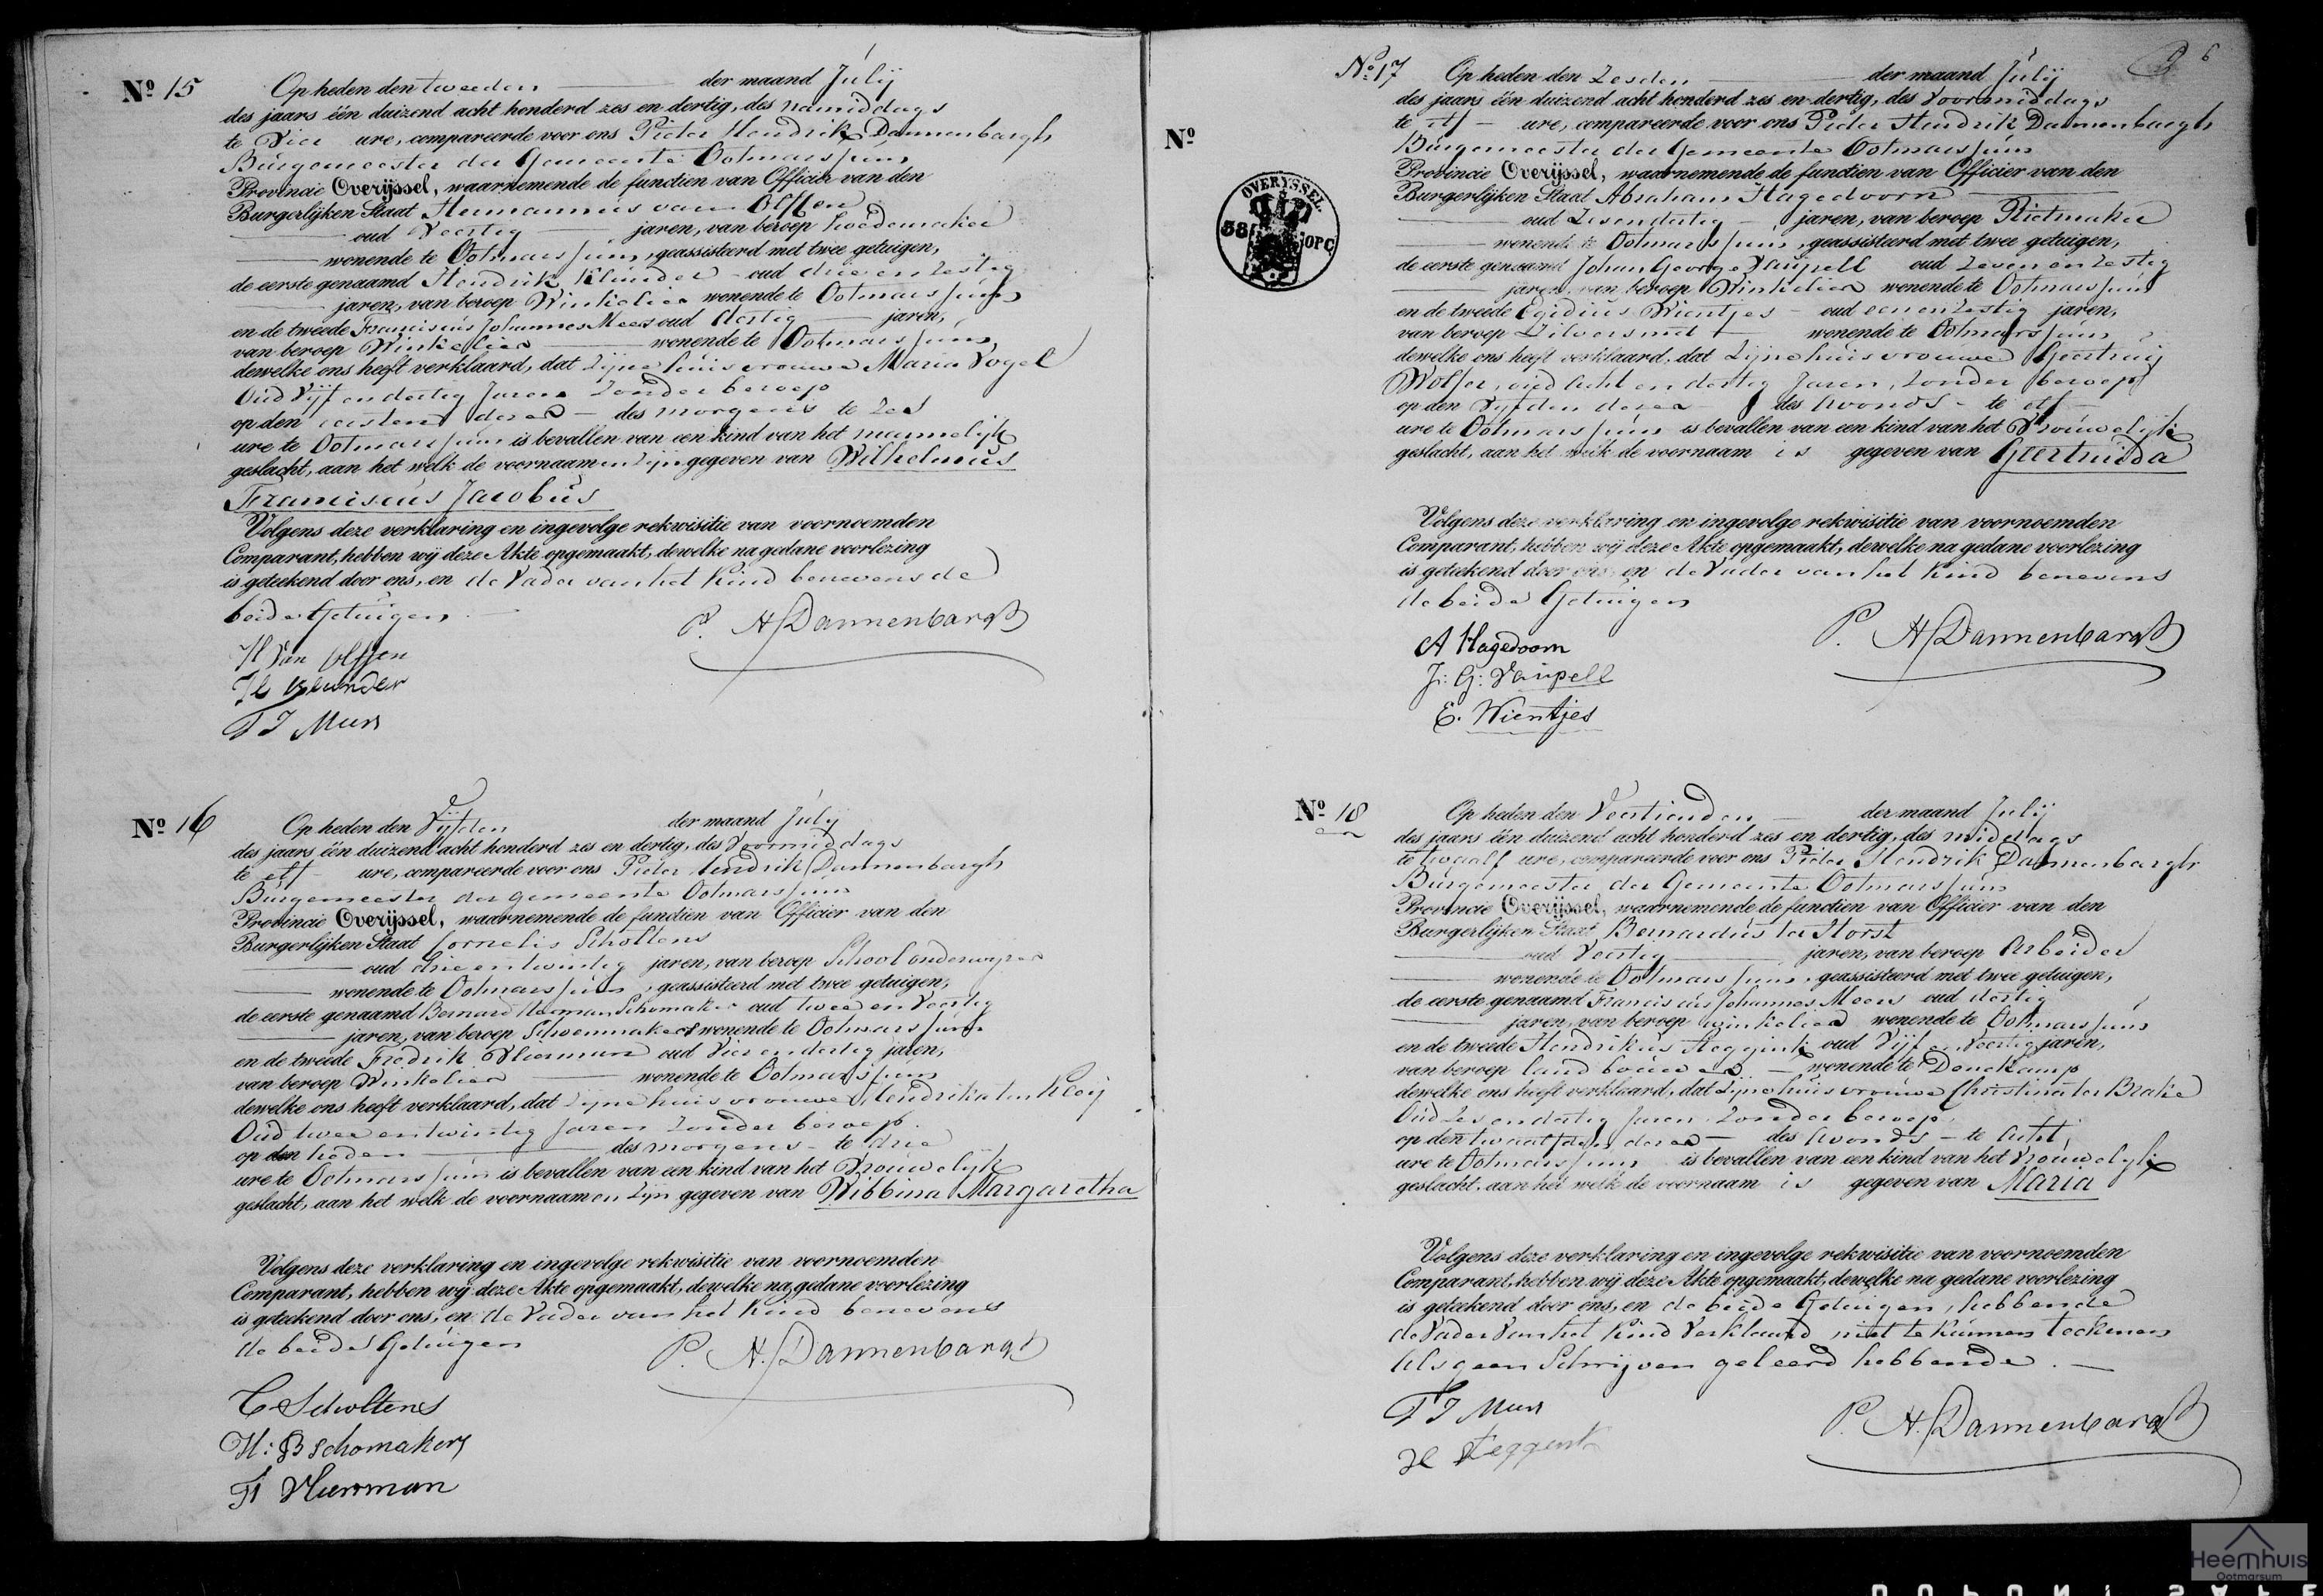 Nº 15
Op heden den tweeden der maand Julij
des jaars één duizend acht honderd zes en dertig, des namiddags
te Vier ure, compareerde voor ons Pieter Hendrik Dannenbargh
Burgemeester der Gemeente Ootmarssum
Provincie Overijssel, waarnemende de functien van Officier van den
Burgerlijken Staat Hermannus van Olffen
oud Veertig jaren, van beroep hoedemaker
wonende te Ootmarssum, geassisteerd met twee getuigen,
de eerste genaamd Hendrik Klunder oud drie en zestig
jaren, van beroep Winkelier wonende te Ootmarssum
en de tweede Franciscus Johannes Mees oud dertig jaren,
van beroep Winkelier wonende te Ootmarssum,
dewelke ons heeft verklaard, dat zijne huisvrouwe Maria Vogel
Oud Vijf en dertig Jaren Zonder beroep
op den eersten dezer des morgens te zes
ure te Ootmarssum is bevallen van een kind van het mannelijk
geslacht, aan het welk de voornaamen zijn gegeven van Wilhelmus
Franciscus Jacobus
Volgens deze verklaring en ingevolge rekwisitie van voornoemden
Comparant, hebben wij deze Akte opgemaakt, dewelke na gedane voorlezing
is geteekend door ons, en de Vader van het Kind benevens de
beide Getuigen
P. H Dannenbargh
H Van Olffen
H Klunder
F J Mees
Nº 16
Op heden den Vijfden der maand July
des jaars één duizend acht honderd zes en dertig, des Voormiddags
te elf ure, compareerde voor ons Pieter Hendrik Dannenbargh
Burgemeester der gemeente Ootmarssum
Provincie Overijssel, waarnemende de functien van Officier van den
Burgerlijken Staat Cornelis Scholtens
oud drie en twintig jaren, van beroep Schoolonderwijzer
wonende te Ootmarssum, geassisteerd met twee getuigen,
de eerste genaamd Bernard Herman Schomaker oud twee en Veertig
jaren, van beroep Schoenmaker wonende te Ootmarssum
en de tweede Fredrik Vleerman oud Vier en dertig jaren,
van beroep Winkelier wonende te Ootmarssum
dewelke ons heeft verklaard, dat zijne huisvrouwe Hendrika ten Kleij
Oud twee en twintig Jaren Zonder beroep.
op den heden des morgens te drie
ure te Ootmarssum is bevallen van een kind van het Vrouwelijk
geslacht, aan het welk de voornaamen zijn gegeven van Wibbina Margaretha
Volgens deze verklaring en ingevolge rekwisitie van voornoemden
Comparant, hebben wij deze Akte opgemaakt, dewelke na gedane voorlezing
is geteekend door ons, en de Vader van het Kind benevens
de beide Getuigen
P. H. Dannenbargh
C Scholtens
H: B Schomaker
F Vleerman
Nº 17
Nº
OVERYSSEL.
Op heden den Zesden der maand Julij
des jaars één duizend acht honderd zes en dertig, des Voormiddags
te elf ure, compareerde voor ons Pieter Hendrik Dannenbargh
Burgemeester der Gemeente Ootmarssum
Provincie Overijssel, waarnemende de functien van Officier van den
Burgerlijken Staat Abraham Hagedoorn
oud Zesendertig jaren, van beroep Rietmaker
wonende te Ootmarssum, geassisteerd met twee getuigen,
de eerste genaamd Johan George Vaupell oud Zeven en Zestig
jaren, van beroep Winkelier wonende te Ootmarssum
en de tweede Egidius Wientjes oud een en Zestig jaren,
van beroep Zilversmit wonende te Ootmarssum,
dewelke ons heeft verklaard, dat zijne huisvrouwe Geertruij
Wolfer, oud Acht en dertig Jaren, Zonder beroep
op den Vijfden dezer des Avonds te elf
ure te Ootmarssum is bevallen van een kind van het Vrouwelijk
geslacht, aan het welk de voornaam is gegeven van Geertruida
Volgens deze verklaring en ingevolge rekwisitie van voornoemden
Comparant, hebben wij deze Akte opgemaakt, dewelke na gedane voorlezing
is geteekend door ons, en de Vader van het Kind benevens
de beide Getuigen
P. H Dannenbargh
A Hagedoorn
J: G: Vaupell
E. Wientjes
Nº 18
Op heden den Veertienden der maand Julij
des jaars één duizend acht honderd zes en dertig, des middags
te twaalf ure, compareerde voor ons Pieter Hendrik Dannenbargh
Burgemeester der Gemeente Ootmarssum
Provincie Overijssel, waarnemende de functien van Officier van den
Burgerlijken Staat Bernardus ter Horst
oud Veertig jaren, van beroep Arbeider
wonende te Ootmarssum, geassisteerd met twee getuigen,
de eerste genaamd Franciscus Johannes Mees oud dertig
jaren, van beroep winkelier wonende te Ootmarssum
en de tweede Hendrikus Steggink oud Vijf en Veertig jaren,
van beroep landbouwer wonende te Denekamp
dewelke ons heeft verklaard, dat zijne huisvrouwe Christina ter Brake
Oud Zes en dertig Jaren Zonder beroep.
op den twaalfden dezer des Avonds te Acht
ure te Ootmarssum is bevallen van een kind van het Vrouwelijk
geslacht, aan het welk de voornaam is gegeven van Maria
Volgens deze verklaring en ingevolge rekwisitie van voornoemden
Comparant, hebben wij deze Akte opgemaakt, dewelke na gedane voorlezing
is geteekend door ons, en de beide Getuigen, hebbende
de Vader van het Kind Verklaard niet te kunnen teekenen
Als geen Schrijven geleerd hebbende.
P. H. Dannenbargh
F J Mees
H Steggink
Heemhuis
Ootmarsum